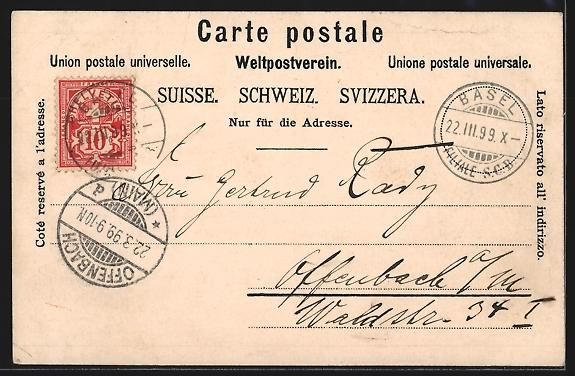 Carte postale
Union postale universelle. Weltpostverein. Unione postale universale.
SUISSE. SCHWEIZ. SVIZZERA.
Nur für die Adresse.
Coté reservé a l'adresse.
Lato riservato all' indirizzo.
HELVETIA
10
BASEL
22.III.99.X-
FILIALE S.C.B.
OFFENBACH
22.3.99.9-10N
* (MAIN) d
Gertrud Rady
Offenbach a/M
Waldstr. 34 I